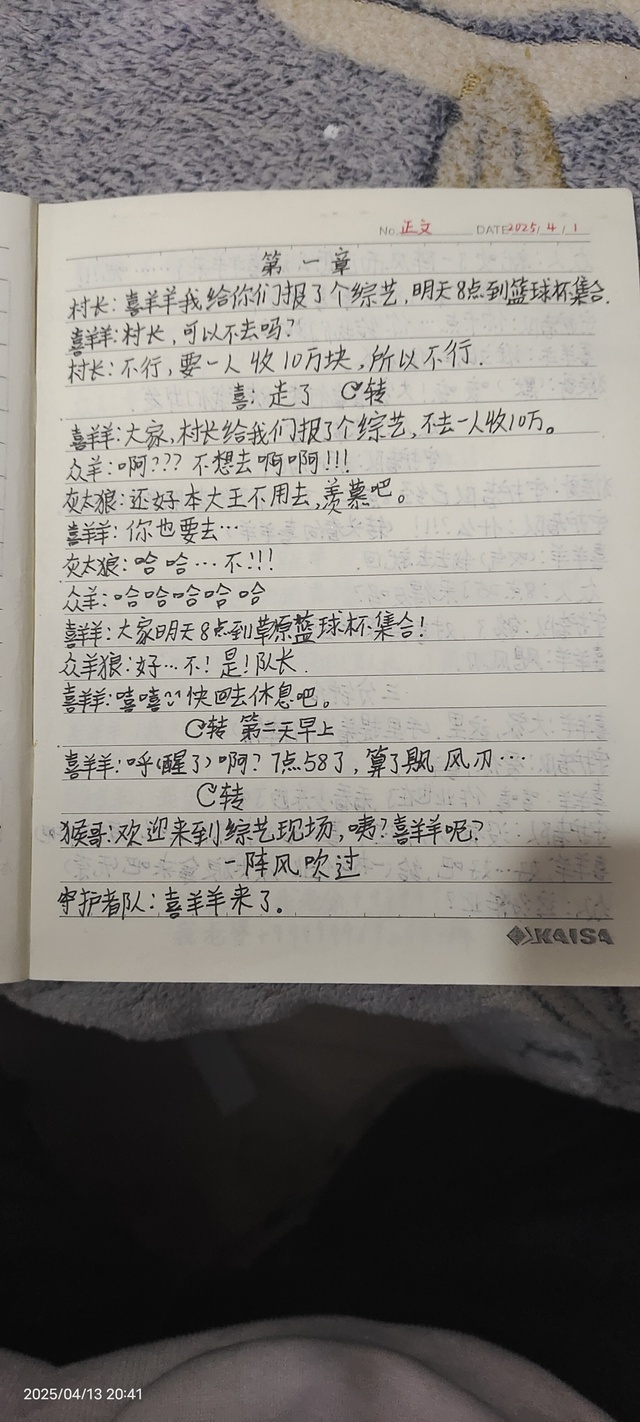 No. 正文 DATE 2025/4/1
第一章
村长:喜羊羊我给你们报了个综艺,明天8点到篮球杯集合.
喜羊羊:村长,可以不去吗?
村长:不行,要一人收10万块,所以不行.
喜:走了 转
喜羊羊:大家,村长给我们报了个综艺,不去一人收10万。
众羊:啊??? 不想去啊啊!!!
灰太狼:还好本大王不用去,羡慕吧。
喜羊羊:你也要去…
灰太狼:哈哈…不!!!
众羊:哈哈哈哈哈
喜羊羊:大家明天8点到草原篮球杯集合!
众羊狼:好…不!是!队长.
喜羊羊:嘻嘻 快回去休息吧。
转 第二天早上
喜羊羊:呼(醒了)啊?7点58了,算了飘 风刃…
转
猴哥:欢迎来到综艺现场,咦?喜羊羊呢?
一阵风吹过
守护者队:喜羊羊来了。
KAISA
2025/04/13 20:41